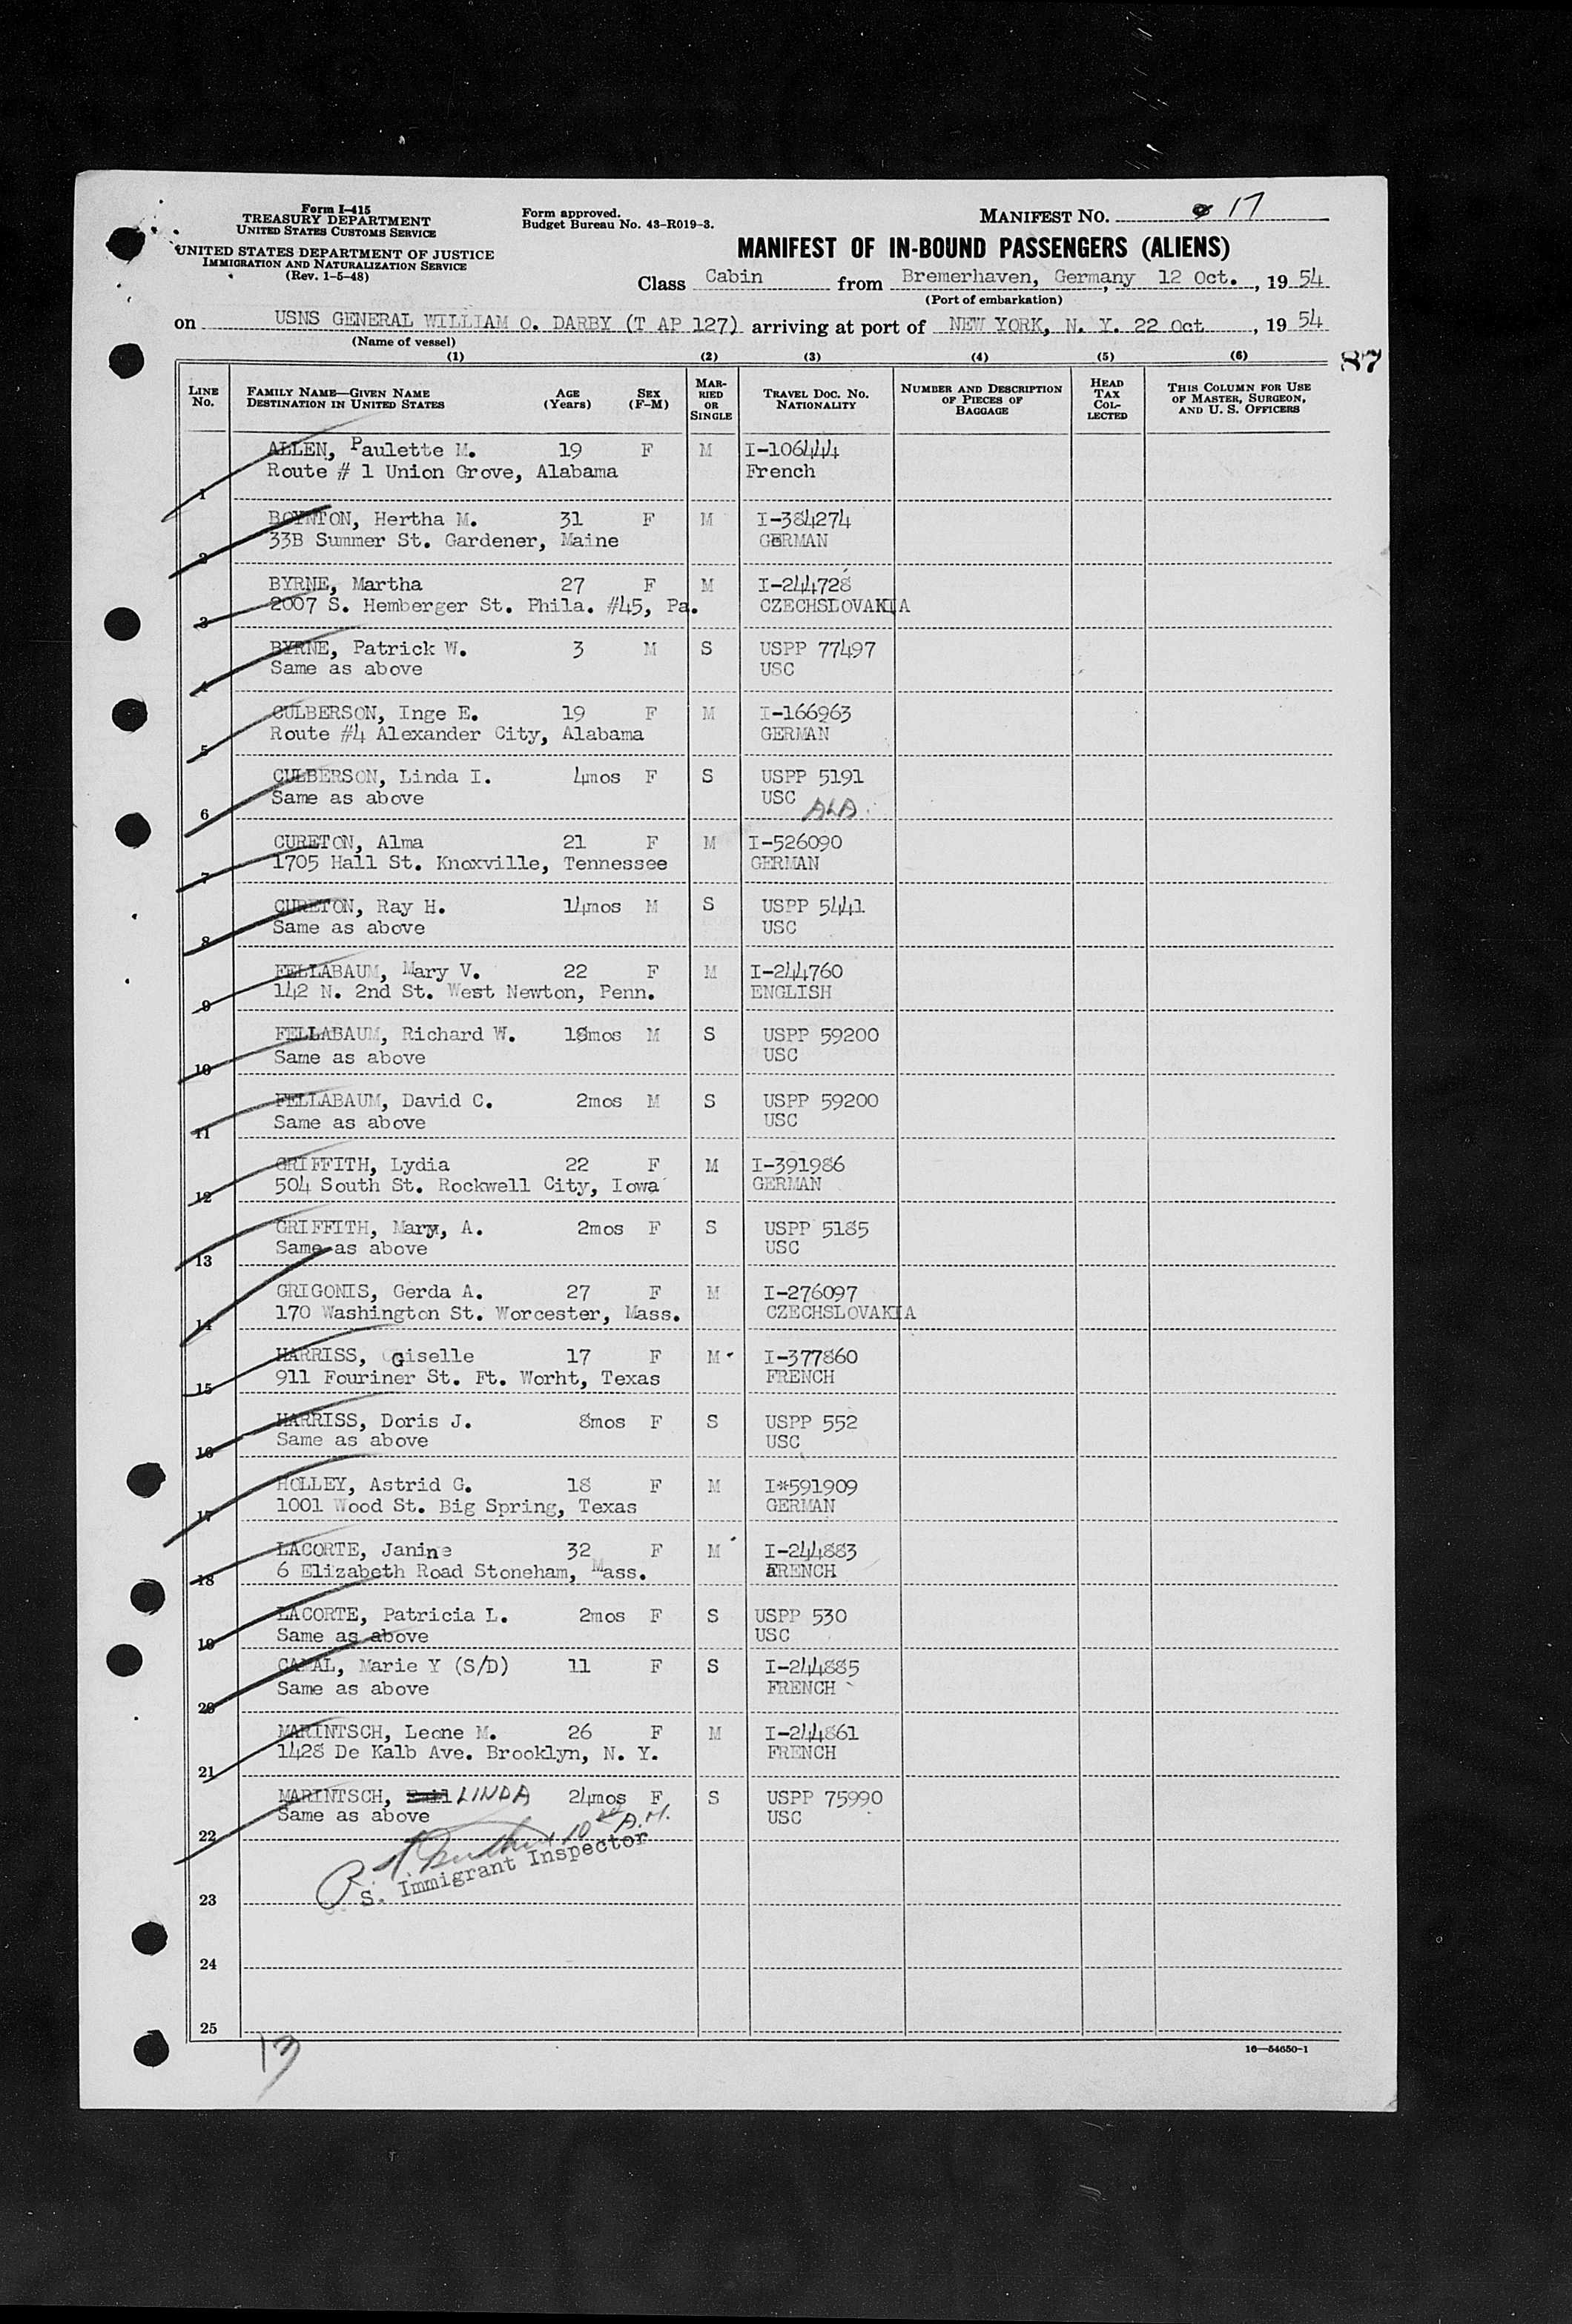 Form I-415
TREASURY DEPARTMENT
UNITED STATES CUSTOMS SERVICE
UNITED STATES DEPARTMENT OF JUSTICE
IMMIGRATION AND NATURALIZATION SERVICE
(Rev. 1-5-48)
Form approved.
Budget Bureau No. 43-R019-3.
MANIFEST NO. 17
MANIFEST OF IN-BOUND PASSENGERS (ALIENS)
Class Cabin from Bremerhaven, Germany, 12 Oct., 19 54
(Port of embarkation)
on USNS GENERAL WILLIAM O. DARBY (T AP 127) arriving at port of NEW YORK, N. Y. 22 Oct, 19 54
(Name of vessel)
87
(1) (2) (3) (4) (5) (6)
LINE No. FAMILY NAME—GIVEN NAME DESTINATION IN UNITED STATES AGE (Years) SEX (F-M) MARRIED OR SINGLE TRAVEL DOC. NO. NATIONALITY NUMBER AND DESCRIPTION OF PIECES OF BAGGAGE HEAD TAX COLLECTED THIS COLUMN FOR USE OF MASTER, SURGEON, AND U. S. OFFICERS
ALLEN, Paulette M. 19 F M I-106444
1 Route # 1 Union Grove, Alabama French
BOYNTON, Hertha M. 31 F M I-384274
2 33B Summer St. Gardener, Maine GERMAN
BYRNE, Martha 27 F M I-244728
3 2007 S. Hemberger St. Phila. #45, Pa. CZECHSLOVAKIA
BYRNE, Patrick W. 3 M S USPP 77497
4 Same as above USC
CULBERSON, Inge E. 19 F M I-166963
5 Route #4 Alexander City, Alabama GERMAN
CULBERSON, Linda I. 4mos F S USPP 5191
6 Same as above USC ALA.
CURETON, Alma 21 F M I-526090
7 1705 Hall St. Knoxville, Tennessee GERMAN
CURETON, Ray H. 14mos M S USPP 5441
8 Same as above USC
FELLABAUM, Mary V. 22 F M I-244760
9 142 N. 2nd St. West Newton, Penn. ENGLISH
FELLABAUM, Richard W. 18mos M S USPP 59200
10 Same as above USC
FELLABAUM, David C. 2mos M S USPP 59200
11 Same as above USC
GRIFFITH, Lydia 22 F M I-391986
12 504 South St. Rockwell City, Iowa GERMAN
GRIFFITH, Mary, A. 2mos F S USPP 5185
13 Same as above USC
GRIGONIS, Gerda A. 27 F M I-276097
14 170 Washington St. Worcester, Mass. CZECHSLOVAKIA
HARRISS, Giselle 17 F M I-377860
15 911 Fouriner St. Ft. Worht, Texas FRENCH
HARRISS, Doris J. 8mos F S USPP 552
16 Same as above USC
HOLLEY, Astrid G. 18 F M I*591909
17 1001 Wood St. Big Spring, Texas GERMAN
LACORTE, Janine 32 F M I-244883
18 6 Elizabeth Road Stoneham, Mass. FRENCH
LACORTE, Patricia L. 2mos F S USPP 530
19 Same as above USC
CANAL, Marie Y (S/D) 11 F S I-244885
20 Same as above FRENCH
MARINTSCH, Leone M. 26 F M I-244861
21 1428 De Kalb Ave. Brooklyn, N. Y. FRENCH
MARINTSCH, LINDA 24mos F S USPP 75990
22 Same as above USC
10 A.M.
S. Immigrant Inspector
23
24
25
13
16—54650-1